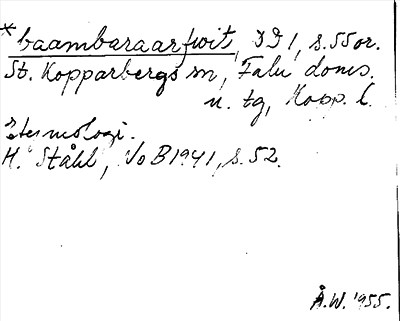 *baambaraarfwit, DD 1, s. 55 or.
St. Kopparbergs sn, Falu doms.
n. tg, Kopp. l.
Etymologi.
H. Ståhl, NoB 1941, s. 52.
Å.W. 1955.